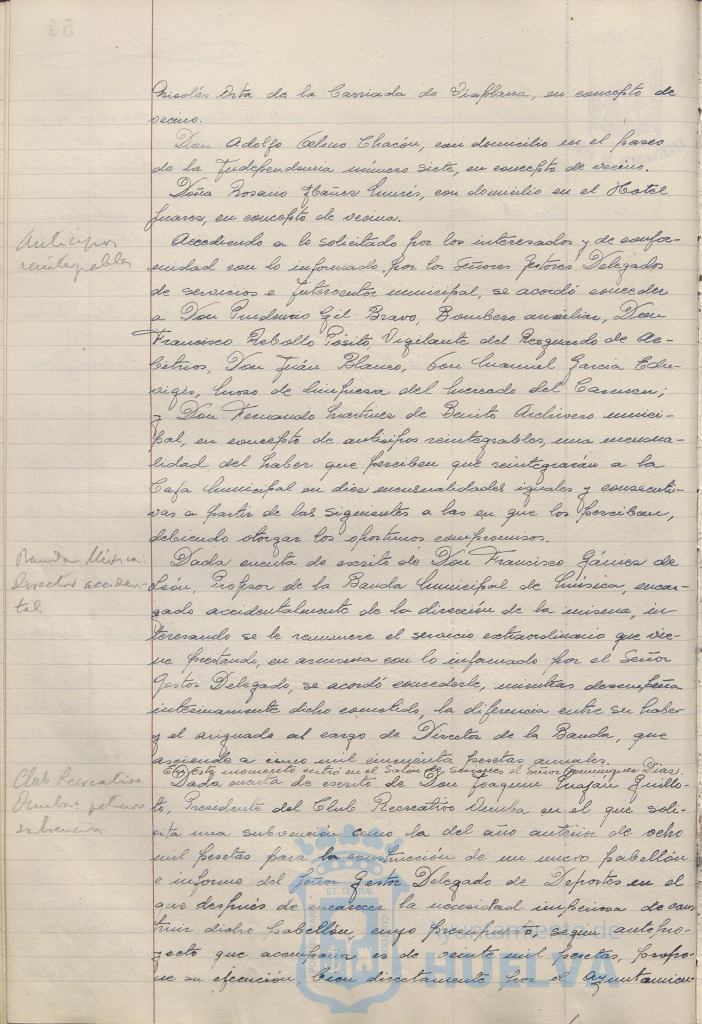 Nicolás Orta de la Barriada de Viaplana, en concepto de
vecino.
Don Adolfo Chacón, con domicilio en el paseo
de la Independencia número siete, en concepto de vecino.
Doña Rosario Ibañez, con domicilio en el Hotel
Suarez, en concepto de vecina.
Anticipos
reintegrables
Accediendo a lo solicitado por los interesados y de confor-
midad con lo informado por los Señores Gestores Delegados
de servicios e Interventor municipal, se acordó conceder
a Don Prudencio Gil Bravo, Bombero auxiliar, Don
Francisco Rebollo Pósito, Vigilante del Resguardo de Ar-
bitrios, Don Juán Blanco, Don Manuel Garcia Edu-
viges, Mozo de limpieza del Mercado del Carmen;
y Don Fernando Martinez de Benito Archivero munici-
pal, en concepto de anticipos reintegrables, una mensua-
lidad del haber que perciben que reintegrarán a la
Caja Municipal en diez mensualidades iguales y consecuti-
vas a partir de las siguientes a las en que los perciban,
debiendo otorgar los oportunos compromisos.
Banda Música:
Director acciden-
tal
Dada cuenta de escrito de Don Francisco Gámez de
León, Profesor de la Banda Municipal de Música, encar-
gado accidentalmente de la dirección de la misma, in-
teresando se le remunere el servicio extraordinario que vie-
ne prestando, en armonia con lo informado por el Señor
Gestor Delegado, se acordó concederle, mientras desempeña
interinamente dicho cometido, la diferencia entre su haber
y el asignado al cargo de Director de la Banda, que
asciende a cinco mil cincuenta pesetas anuales.
(En este momento entró en el Salón de sesiones el Señor Dominguez Diaz).
Club Recreativo
Onuba:
subvención
Dada cuenta de escrito de Don Joaquin Guillo-
to, Presidente del Club Recreativo Onuba en el que soli-
cita una subvención como la del año anterior de ocho
mil pesetas para la construcción de un nuevo pabellón
e informe del Señor Gestor Delegado de Deportes en el
que después de encarecer la necesidad imperiosa de cons-
truir dicho pabellón, cuyo presupuesto, según antepro-
yecto que acompaña es de veinte mil pesetas, propo-
ne su ejecución, bien directamente por el Ayuntamien-
Ayuntamiento de
HUELVA